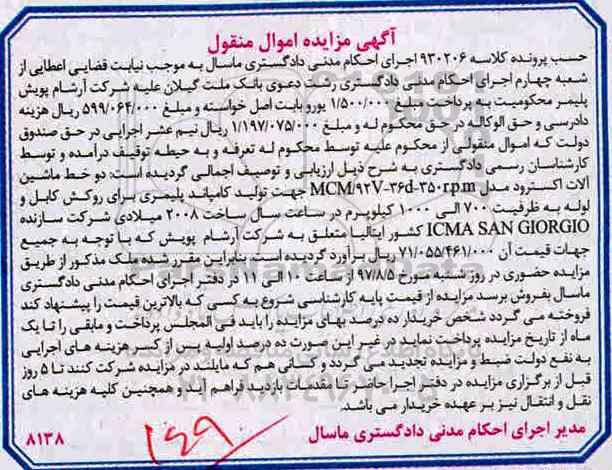 آگهی مزایده اموال منقول
حسب پرونده کلاسه ۹۳۰۲۰۶ اجرای احکام مدنی دادگستری ماسال به موجب نیابت قضایی اعطایی از
شعبه چهارم اجرای احکام مدنی دادگستری رشت دعوی بانک ملت گیلان علیه شرکت آرشام پویش
پلیمر محکومیت به پرداخت مبلغ ۱/۵۰۰/۰۰۰ یورو بابت اصل خواسته و مبلغ ۵۹۹/۰۶۴/۰۰۰ ریال هزینه
دادرسی و حق الوکاله در حق محکوم له و مبلغ ۱/۱۹۷/۰۷۵/۰۰۰ ریال نیم عشر اجرایی در حق صندوق
دولت که اموال منقولی از محکوم علیه توسط محکوم له تعرفه و به حیطه توقیف درآمده و توسط
کارشناسان رسمی دادگستری به شرح ذیل ارزیابی و توصیف اجمالی گردیده است: دو خط ماشین
آلات اکسترود مدل MCM/۹۲V-۳۶d-۳۵۰r.p.m جهت تولید کامپاند پلیمری برای روکش کابل و
لوله به ظرفیت ۷۰۰ الی ۱۰۰۰ کیلوگرم در ساعت سال ساخت ۲۰۰۸ میلادی شرکت سازنده
ICMA SAN GIORGIO کشور ایتالیا متعلق به شرکت آرشام پویش که با توجه به جمیع
جهات قیمت آن ۷۱/۰۵۵/۴۶۱/۰۰۰ ریال برآورد گردیده است. بنابراین مقرر شده ملک مذکور از طریق
مزایده حضوری در روز شنبه مورخ ۹۷/۸/۵ از ساعت ۱۰ الی ۱۱ در دفتر اجرای احکام مدنی دادگستری
ماسال بفروش برسد مزایده از قیمت پایه کارشناسی شروع به کسی که بالاترین قیمت را پیشنهاد کند
فروخته می گردد شخص خریدار ده درصد بهای مزایده را باید فی المجلس پرداخت و مابقی را تا یک
ماه از تاریخ مزایده پرداخت نماید در غیر این صورت ده درصد اولیه پس از کسر هزینه های اجرایی
به نفع دولت ضبط و مزایده تجدید می گردد و کسانی هم که مایلند در مزایده شرکت کنند تا ۵ روز
قبل از برگزاری مزایده در دفتر اجرا حاضر تا مقدمات بازدید فراهم آید و همچنین کلیه هزینه های
نقل و انتقال نیز بر عهده خریدار می باشد.
مدیر اجرای احکام مدنی دادگستری ماسال
۸۱۳۸
۱۴۹